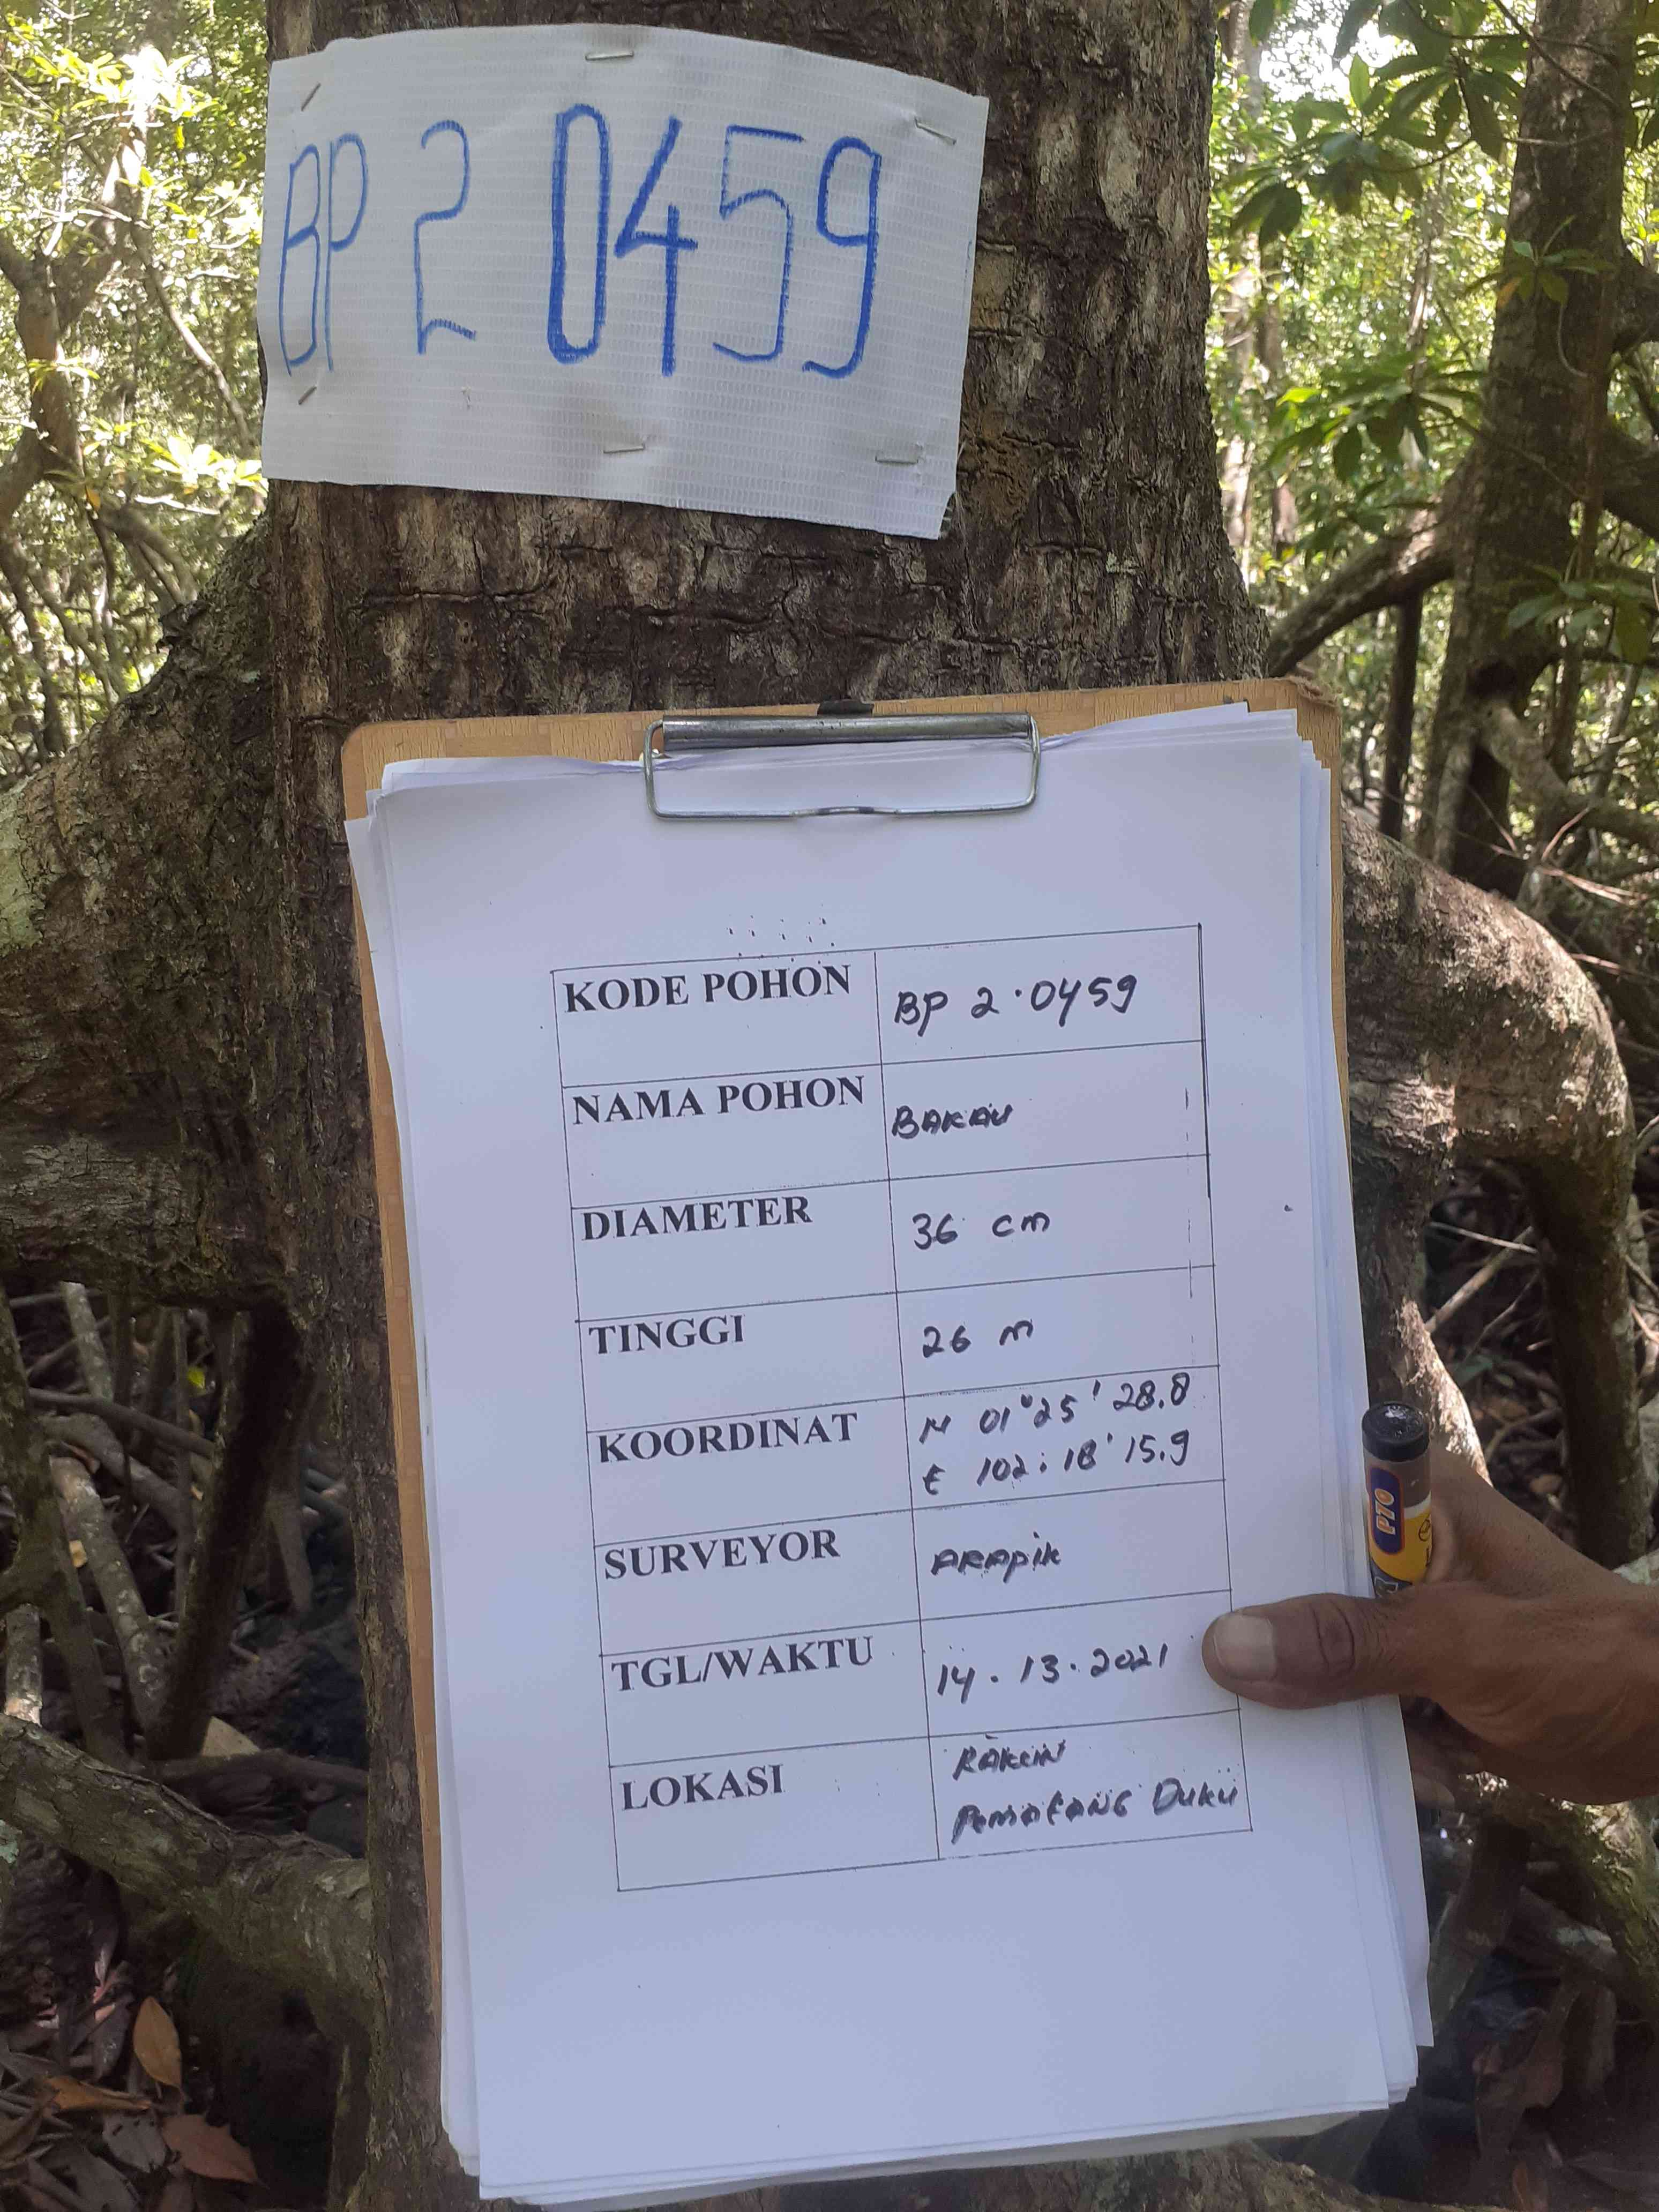 BP 2 0459
KODE POHON BP 2.0459
NAMA POHON BAKAU
DIAMETER 36 cm
TINGGI 26 m
KOORDINAT N 01°25'28.8
E 102:18'15.9
SURVEYOR ARApik
TGL/WAKTU 14.13.2021
LOKASI
PemataNG Duku
PTO